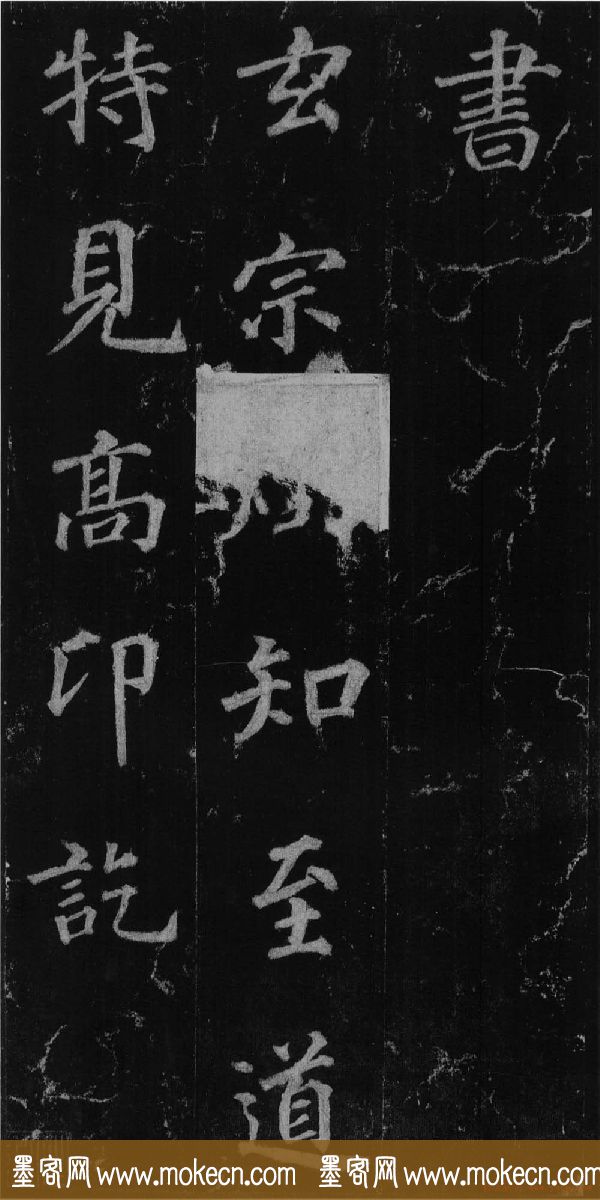 書
玄宗知至道
特見高印訖
墨客网 www.mokecn.com 墨客网 www.mokecn.com